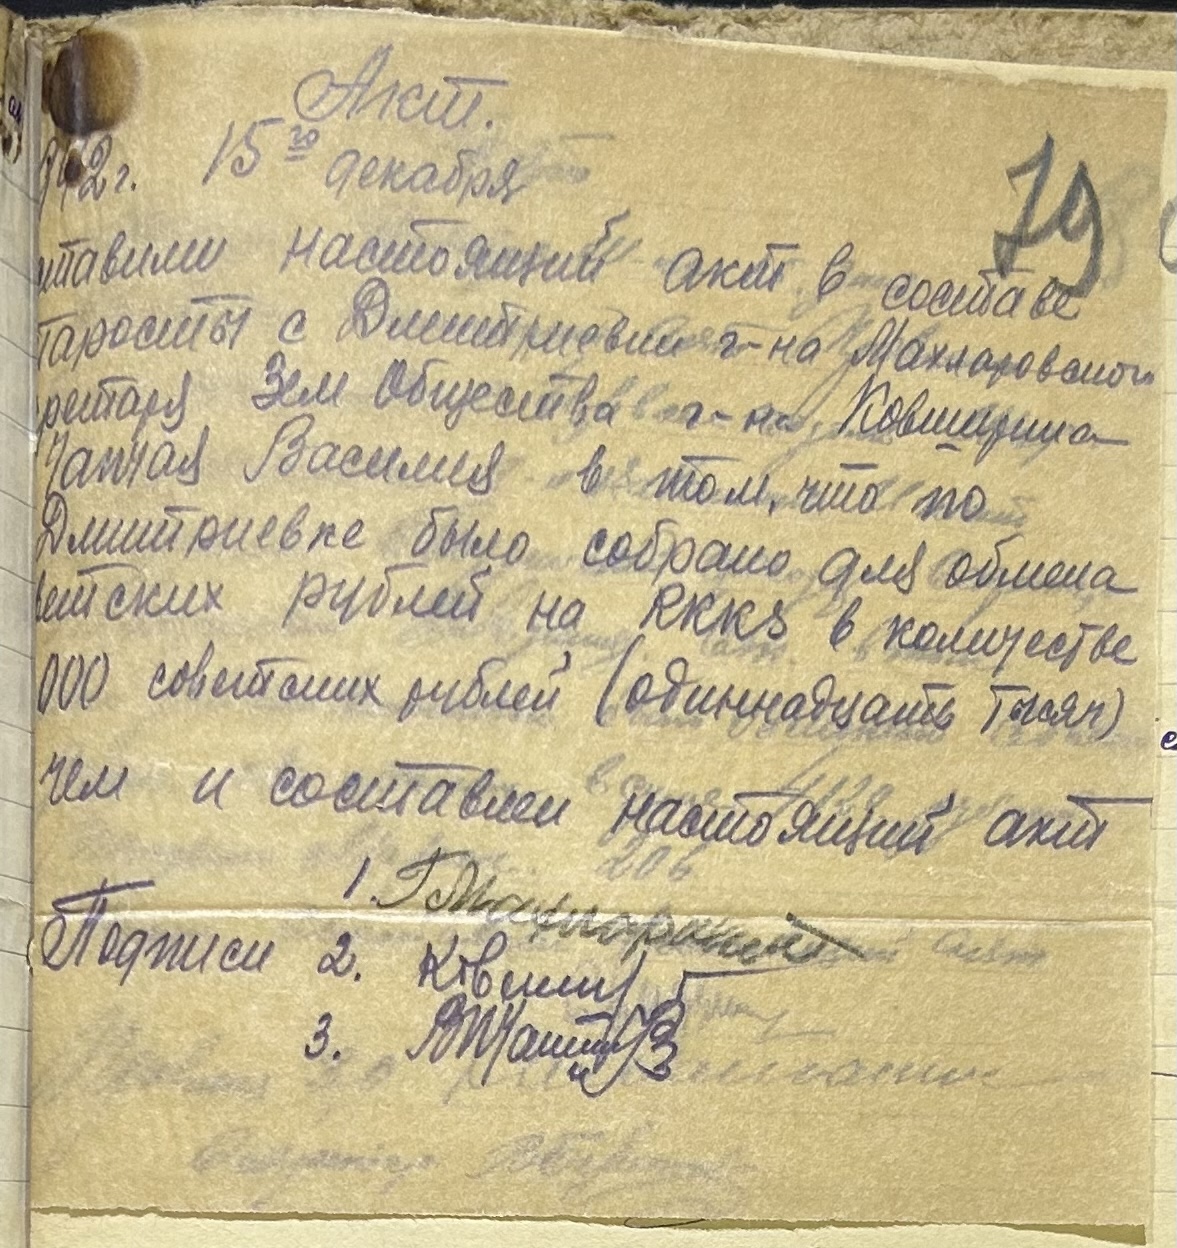 Акт.
942г. 15го декабря
79
ставили настоящий акт в составе
таросты с Дмитриевки г-на Махларовского
ретаря Зем Общества г-на Ковширина
Чапная Василия в том, что по
Дмитриевке было собрано для обмена
ветских рублей на RKKS в количестве
000 советских рублей (одиннадцать тысяч)
чем и составлен настоящий акт
1.
Подписи 2.
3.